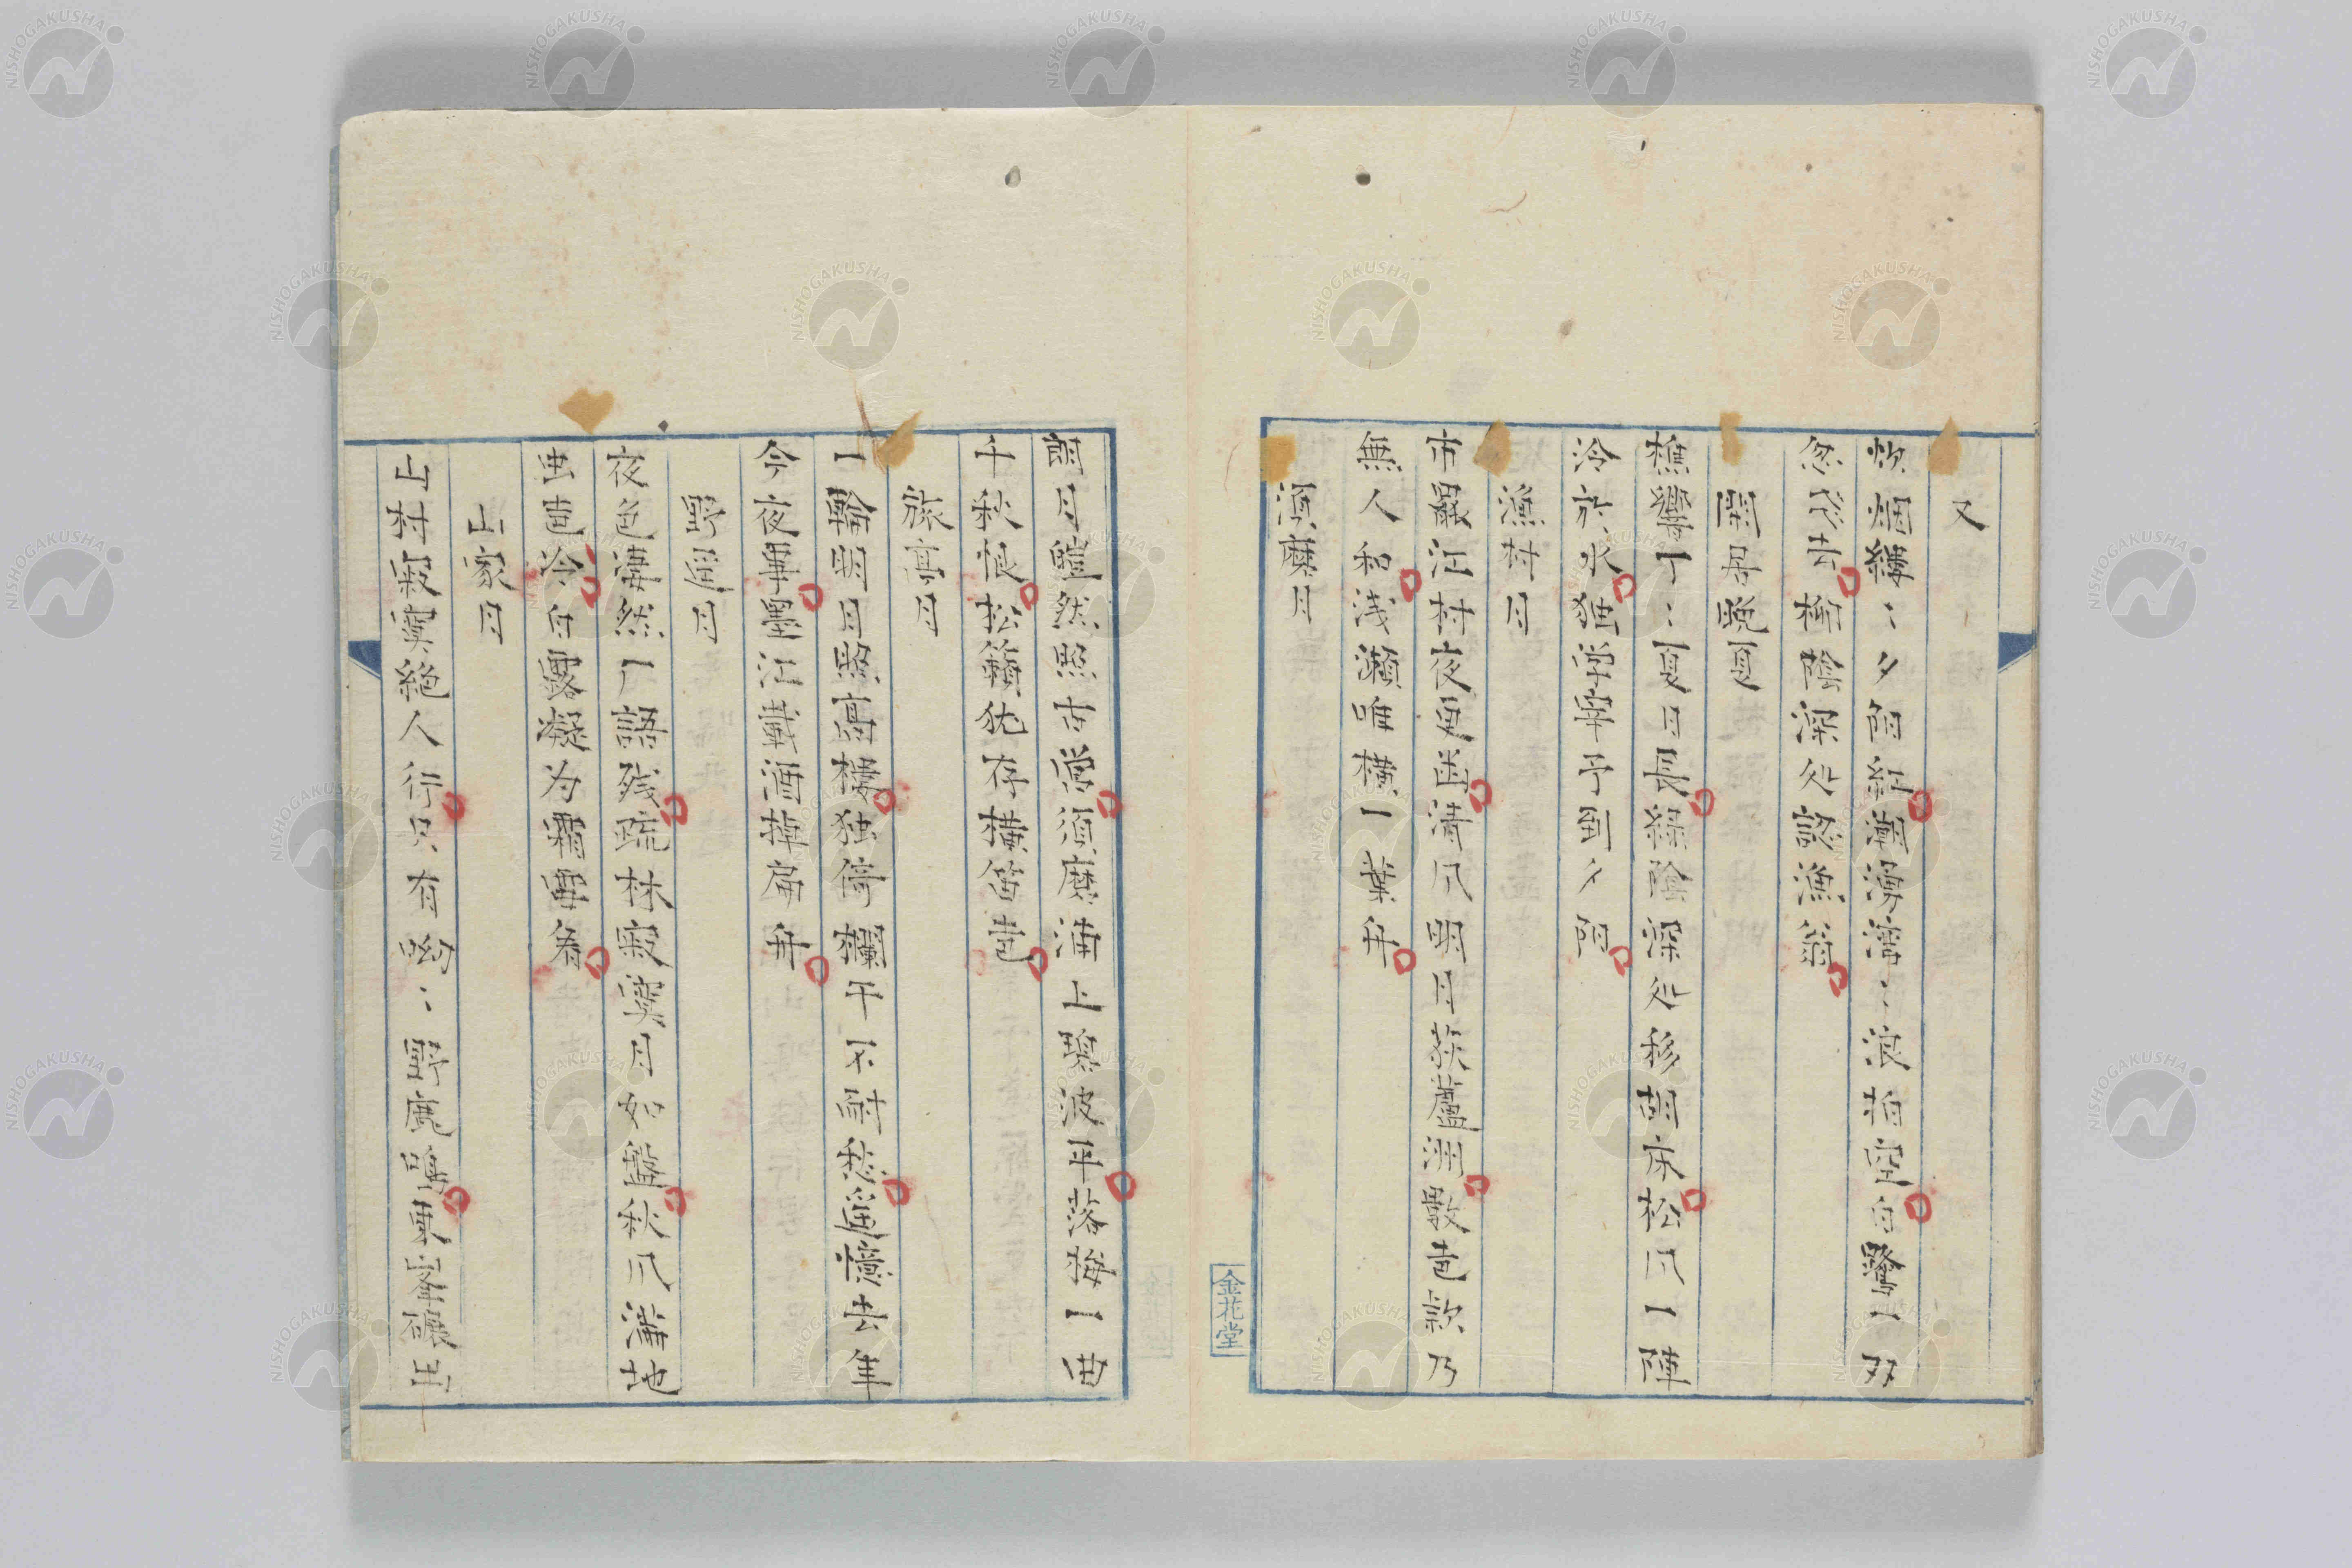 又
炊烟縷〻夕陽紅潮満〻浪拍空白鷺一双
忽飛去柳陰深処認漁翁
閑居晩夏
樵響丁〻夏日長緑陰深処移胡床松风一陣
冷於水独学宰予臥夕陽
漁村月
市散江村夜更幽清风明月荻蘆洲数声欸乃
無人和浅瀬唯横一葉舟
須磨月
朗月皚然照古営須磨浦上瓊波平落梅一曲
千秋恨松籟犹存横笛声
旅亭月
一輪明月照高楼独倚欄干不耐愁遥憶去年
今夜事墨江載酒掉扁舟
野逕月
夜色凄然厂語残疏林寂寞月如盤秋风満地
虫声冷白露凝为霜再看
山家月
山村寂寞絶人行只有呦〻野鹿鳴東峯碾出
金花堂
NISHOGAKUSHA